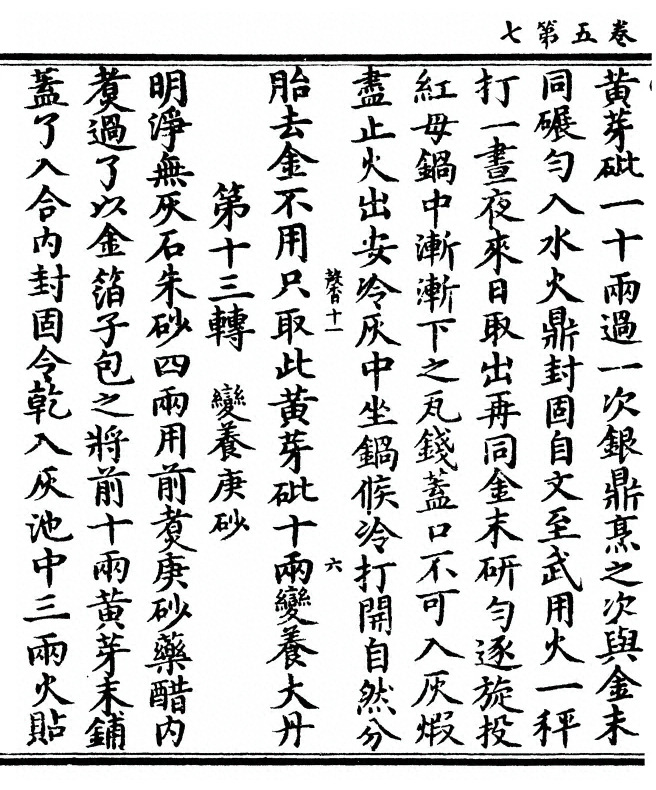 卷五第七
黃芽砒一十兩過一次銀鼎烹之次與金末
同碾勻入水火鼎封固自文至武用火一秤
打一晝夜來日取出再同金末研勻逐旋投
紅母鍋中漸漸下之瓦錢蓋口不可入灰煆
盡止火出安冷灰中坐鍋候冷打開自然分
胎去金不用只取此黃芽砒十兩變養大丹
第十三轉 變養庚砂
明淨無灰石朱砂四兩用前煑庚砂藥醋內
煑過了以金箔子包之將前十兩黃芽末鋪
蓋了入合內封固令乾入灰池中三兩火貼